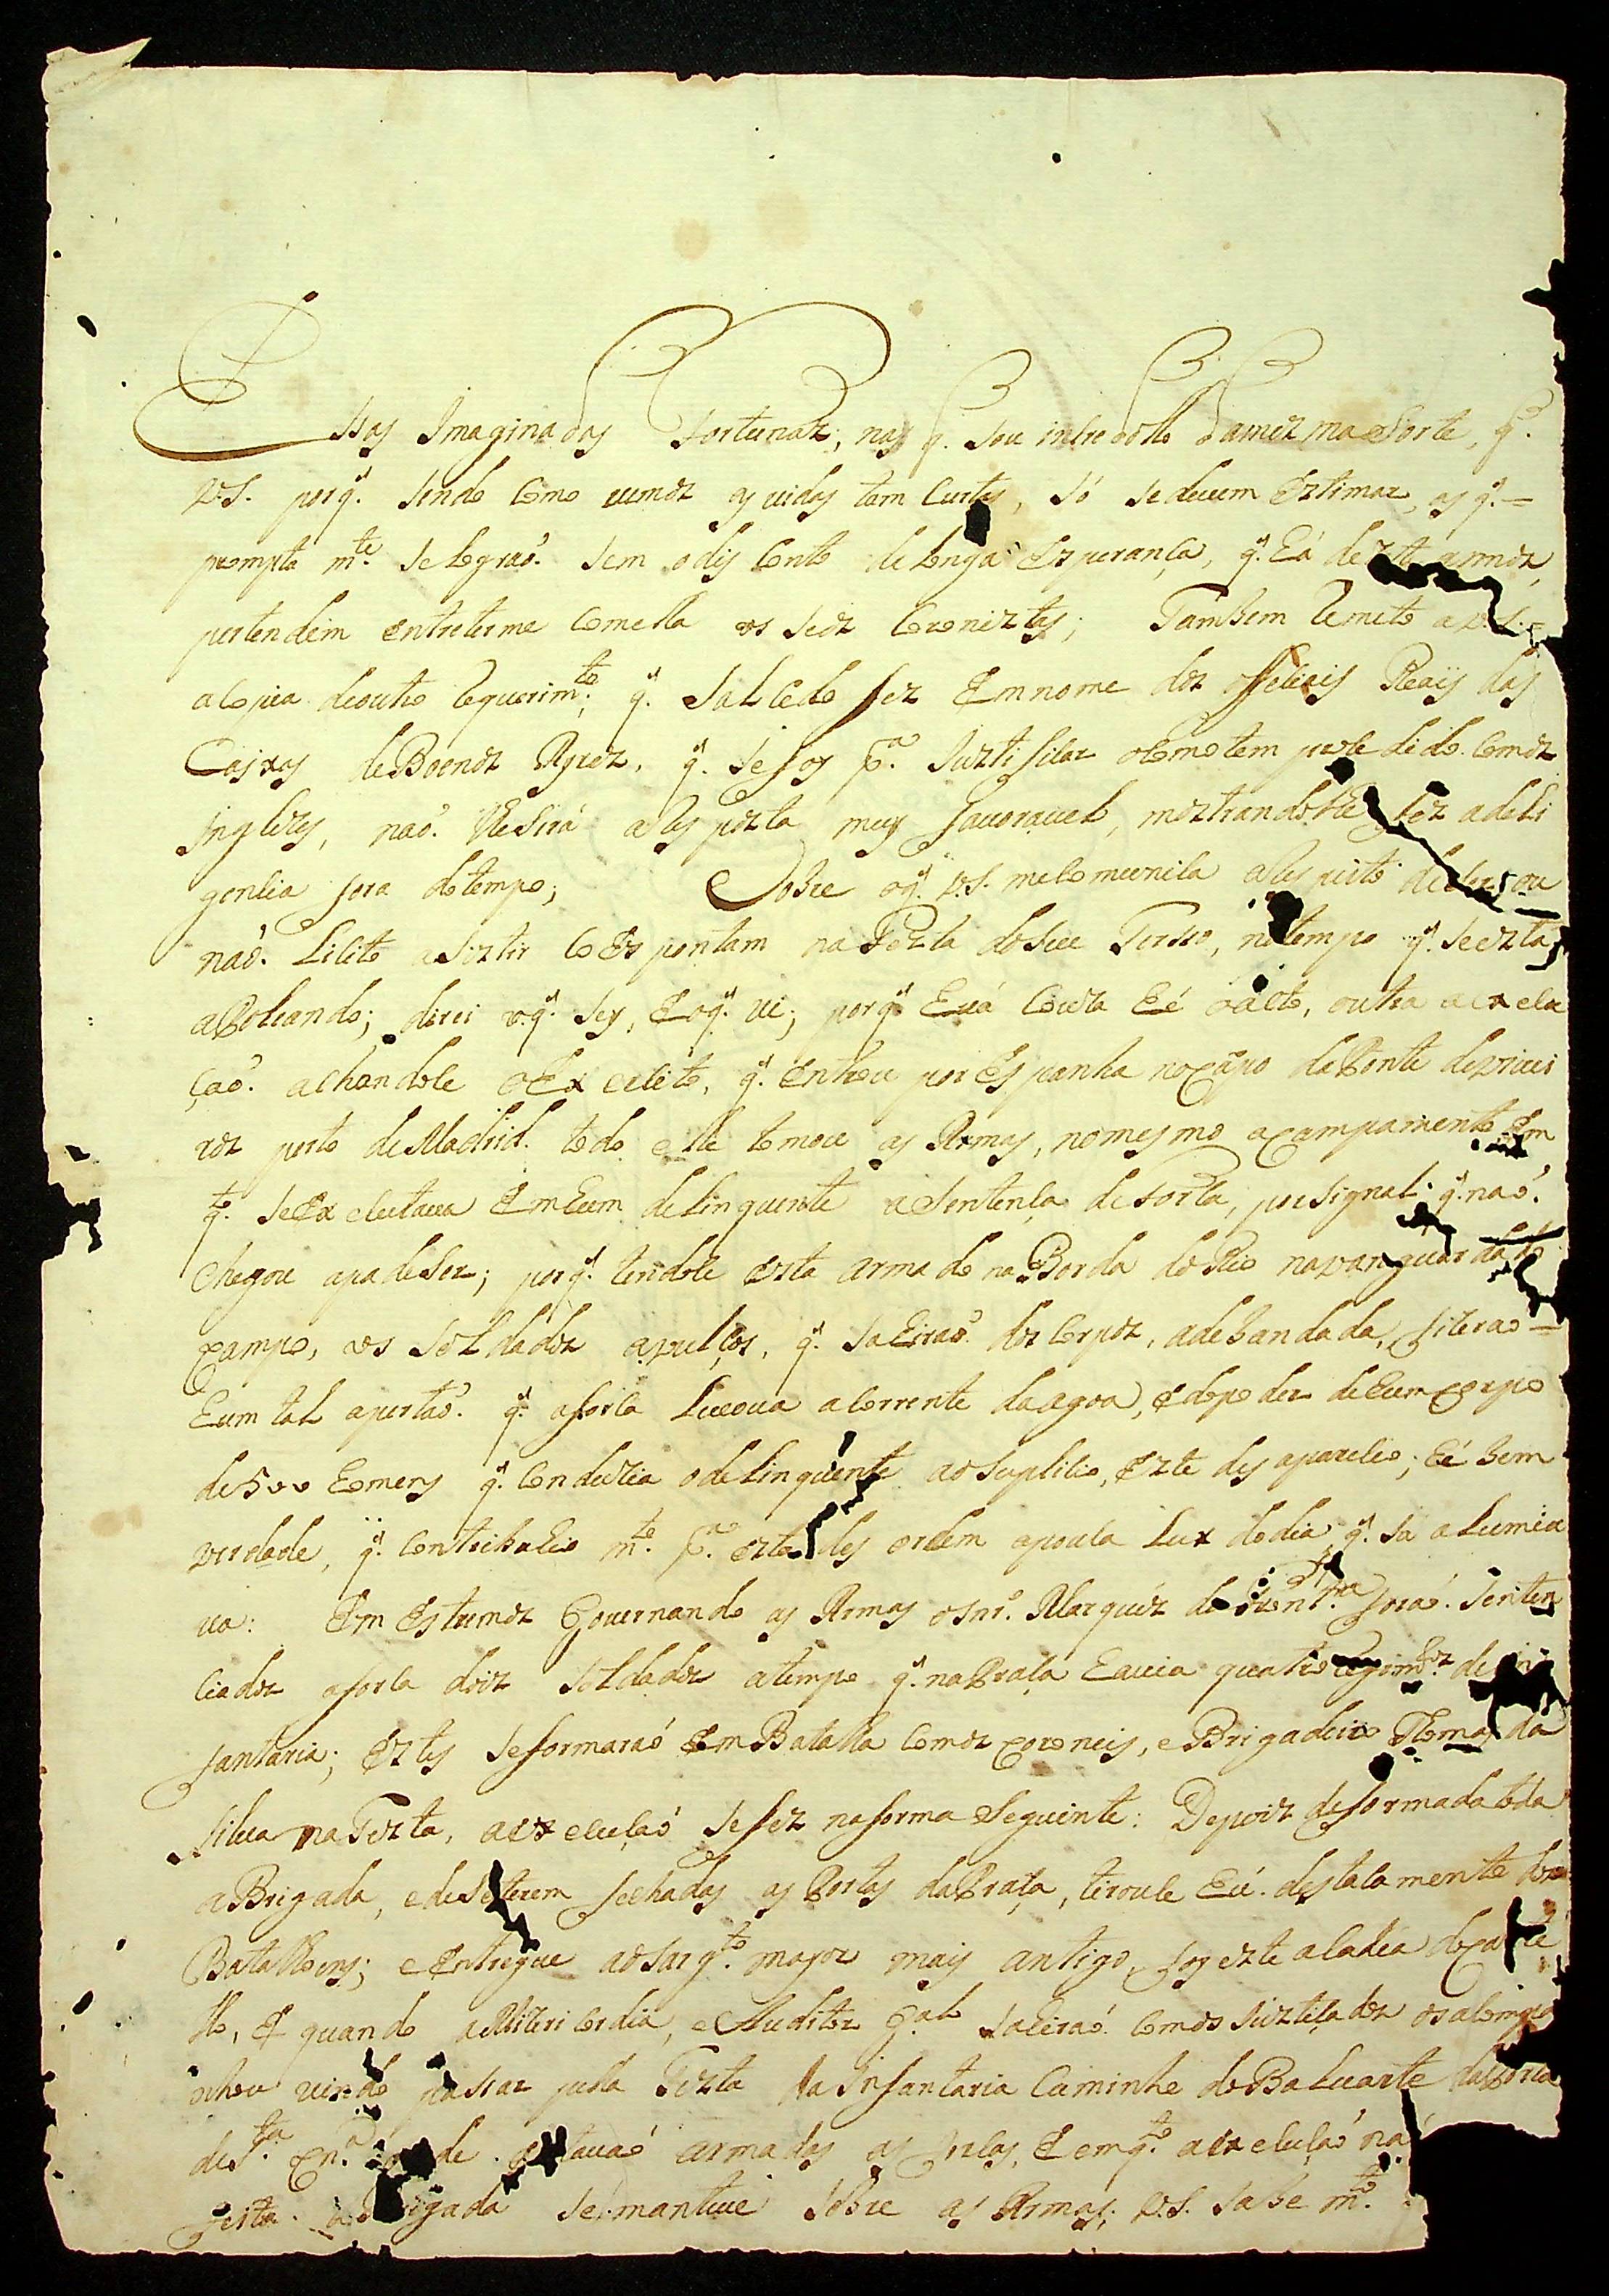 Essas Imaginadas fortunas, nas q. sou da mesma sorte, q.
V.S. porq. sendo como vemos as vidas tam curtas, só se devem Estimar, as q. =
prompta m.te se logrão. sem o dis conto de longa Esperança, q. há deste annos,
pertendem Entreterme com ella os seos Coronistas; Tambem Remeto a V.S. =
a Copia de outro Requerim.to; q. Salcedo fez Em nome dos officiais Reais das
Caixas de Boenos Ayres, q. se foy p.a Justificar o como tem procedido. com os
Inglezes, não. lhe Será a Resposta muy favoravel, mostrandolhe fez a deli
gencia fora do tempo; Sobre o q. V.S. me comunica a Respeito de ser, ou
não. Licito a Sistir Co Espontam na Testa do seu Terso, no tempo q. se está
abolcando; direi o q. sey, E o q. vi; porq. huã Couza hé o acto, outra a exelcu
ção. achandoce o Exercito, q. Entrou por Espanha no Campo da Ponte de vivei
ros perto de Madrid. todo elle tomou as Armas, no mesmo acampamento Em
q.to se Exelcutava Em hum delinquente a Sentença de forca, por signal. q. não.
Chegou a padeser; porq. tendoce esta armado na Borda do Rio na vanguarda do
Campo, os Soldados avulços, q. sahirão. dos Corpos, a debandada, fizerao =
hum tal apertão. q. a forca Levou a Corrente da agoa, E do poder de hum Corpo
de 500 homens q. Conduzia o delinquente ao Suplicio, Este des apareceo; hé bem
verdade, q. Contribuhio m.to p.a esta des ordem a pouca Lux do dia q. já alumia
va: Em Estremos Governando as Armas o snr. Marquês de Front.ra forão. Senten
ciados a forca dois Soldados a tempo q. na Praça havia quatro regim.tos de in
fantaria; Estes se formarão Em Batalha com os Coroneis, e Brigadeiro Thomas da
Silva na Testa, a exelcução se fez na forma Seguinte: Depois de formada toda
a Brigada, e de se terem fechadas as Portas da Praça, tirouce hũ. destacamento dos
Batalhoens; e Entregue ao Sarg.to mayor mais antigo, foy este a Cadea do Caste
llo, E quando a Mizericordia, e Auditor G.al Sahirão. com os Justiçados os acompa
nhou vindo passar pella Testa da Infantaria Caminho do Baluarte da Porta
de S.ta Cn.a onde estavão armadas as forcas, E em q.to a exelcução não
feita. a Brigada se manteve Sobre as Armas; V.S. Sabe m.to